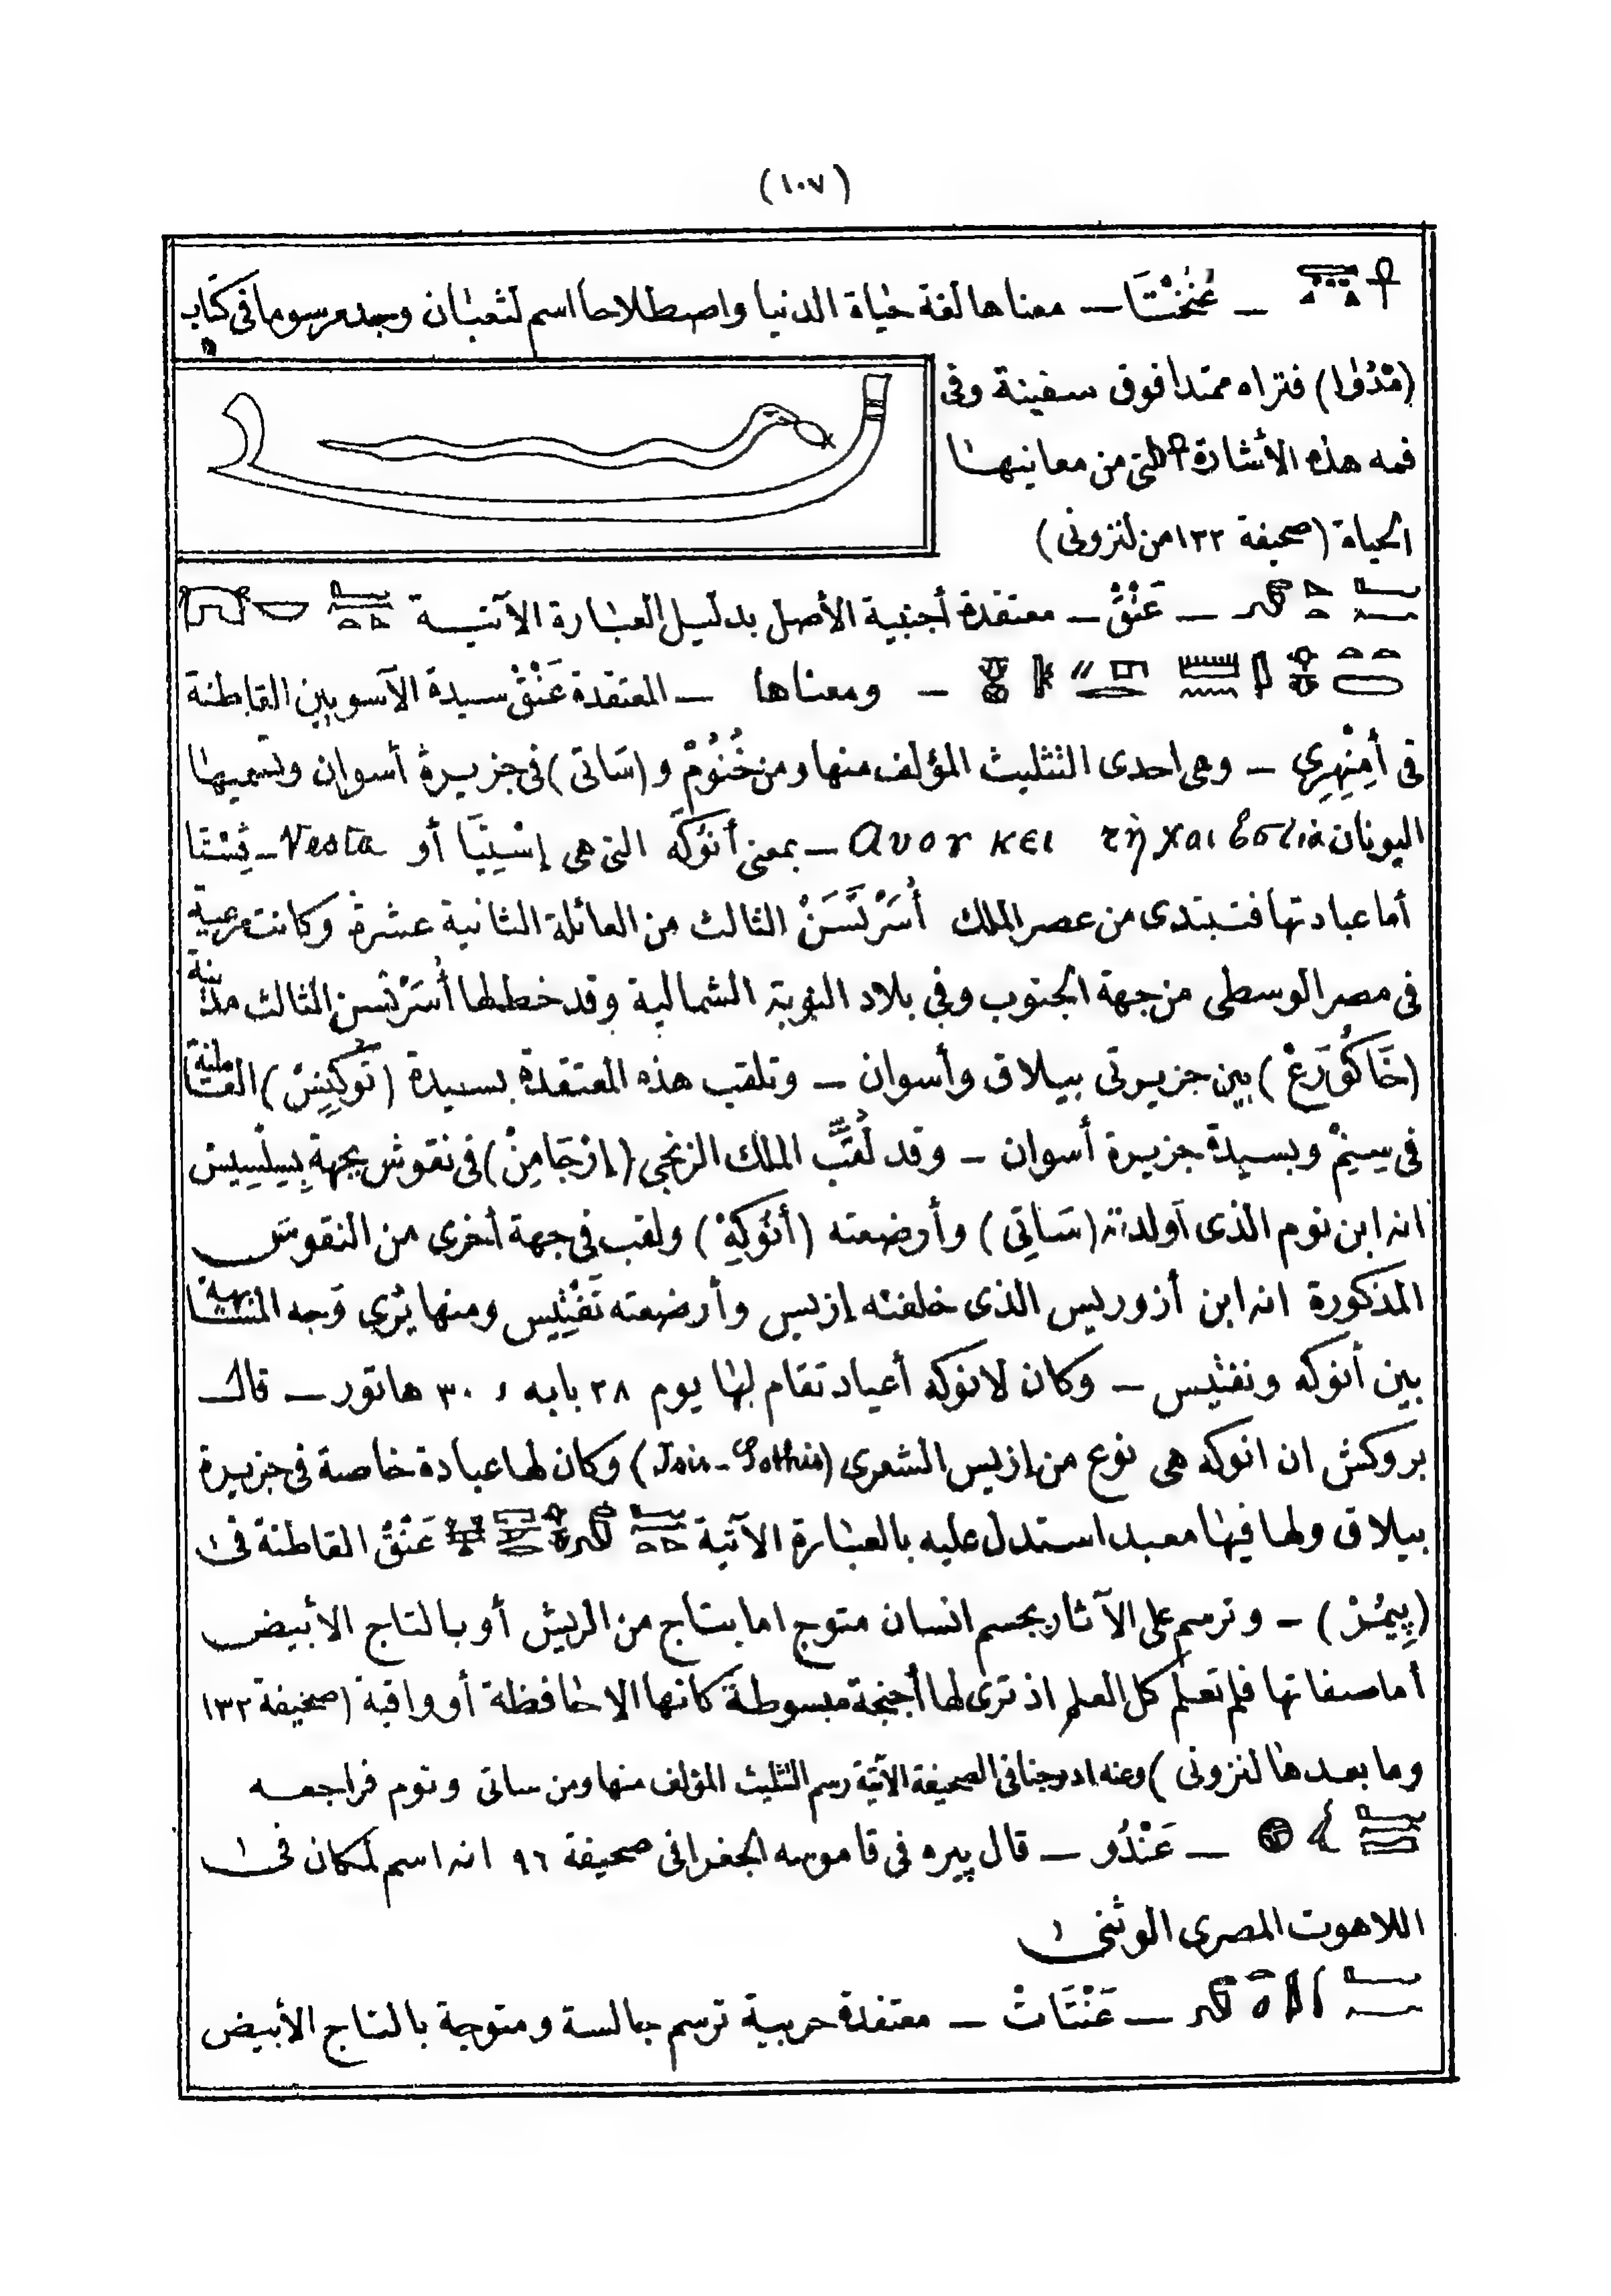 (١٠٧)
— عُنْخْتَا — معناها لغة حياة الدنيا واصطلاحا اسم لثعبان وجد مرسوما في كتاب
(مْدُوْا) فتراه ممتدا فوق سفينة وفى
فمه هذه الأشارة التى من معانيها
الحياة (صحيفة ١٣٢ من لنزونى)
— عَنْقْ — معتقدة أجنبية الأصل بدليل العبارة الآتيـة
— ومعناها — المعتقدة عَنْقْ سيدة الآسويين القاطنة
فى أمِنْهِرِي — وهى احدى التثليث المؤلف منها ومن خُنُومْ و (سَاتى) فى جزيرة أسوان وتسميها
اليونان τῇ και Εστιὰ Ανουκει — بمعنى أنُوكَه التى هى إسْتِيَا أو Vesta — ڤِسْتَا
أما عبادتها فتبتدى من عصر الملك أُسَرْتَسَنْ الثالث من العائلة الثانية عشرة وكانت مرعية
فى مصر الوسطى من جهة الجنوب وفي بلاد النوبة الشمالية وقد خططها أُسَرْتَسن الثالث مدينة
(خَاكُورَعْ) بين جزيرتى بيلاق وأسوان — وتلقب هذه المعتقدة بسيدة (تُوكِنِسْ) القاطنة
فى سِنِمْ وبسيدة جزيرة أسوان — وقد لُقِّبَ الملك الزنجى (إرْجَامِنْ) فى نقوش بجهة بِسِلْسِيسْ
انه ابن نوم الذى أولدته (سَاتِى) وأرضعته (أنُوكِهْ) ولقب فى جهة أخرى من النقوش
المذكورة انه ابن أزوريس الذى خلفته إزيس وأرضعته نَفْتِيس ومنها يُرى وَجه المشابهة
بين أنوكه ونفتيس — وكان لانوكه أعياد تقام لها يوم ٢٨ بابه و ٣٠ هاتور — قال
بروكش ان انوكه هى نوع من إزيس الشعرى (Isis - Sothis) وكان لها عبادة خاصة فى جزيرة
بيلاق ولها فيها معبد استدل عليه بالعبارة الآتية عَنْقْ القاطنة فى
(پِيمُرْ) — وترسم على الآثار بجسم انسان متوج اما بتاج من الريش أو بالتاج الأبيض
أما صفاتها فلم تعلم كل العلم اذ ترى لها أجنحة مبسوطة كانها الاحافظة أو واقية (صحيفة ١٣٢
وما بعدها لنزونى) وعنه ادرجنا فى الصحيفة الآتية رسم التثليث المؤلف منها ومن ساتى ونوم فراجعه
— عَنْدُو — قال پيره فى قاموسه الجغرافى صحيفة ٩٦ انه اسم لمكان فى
اللاهوت المصرى الوثنى
— عَنْتَاتْ — معتقدة حربية ترسم جالسة ومتوجة بالتاج الأبيض